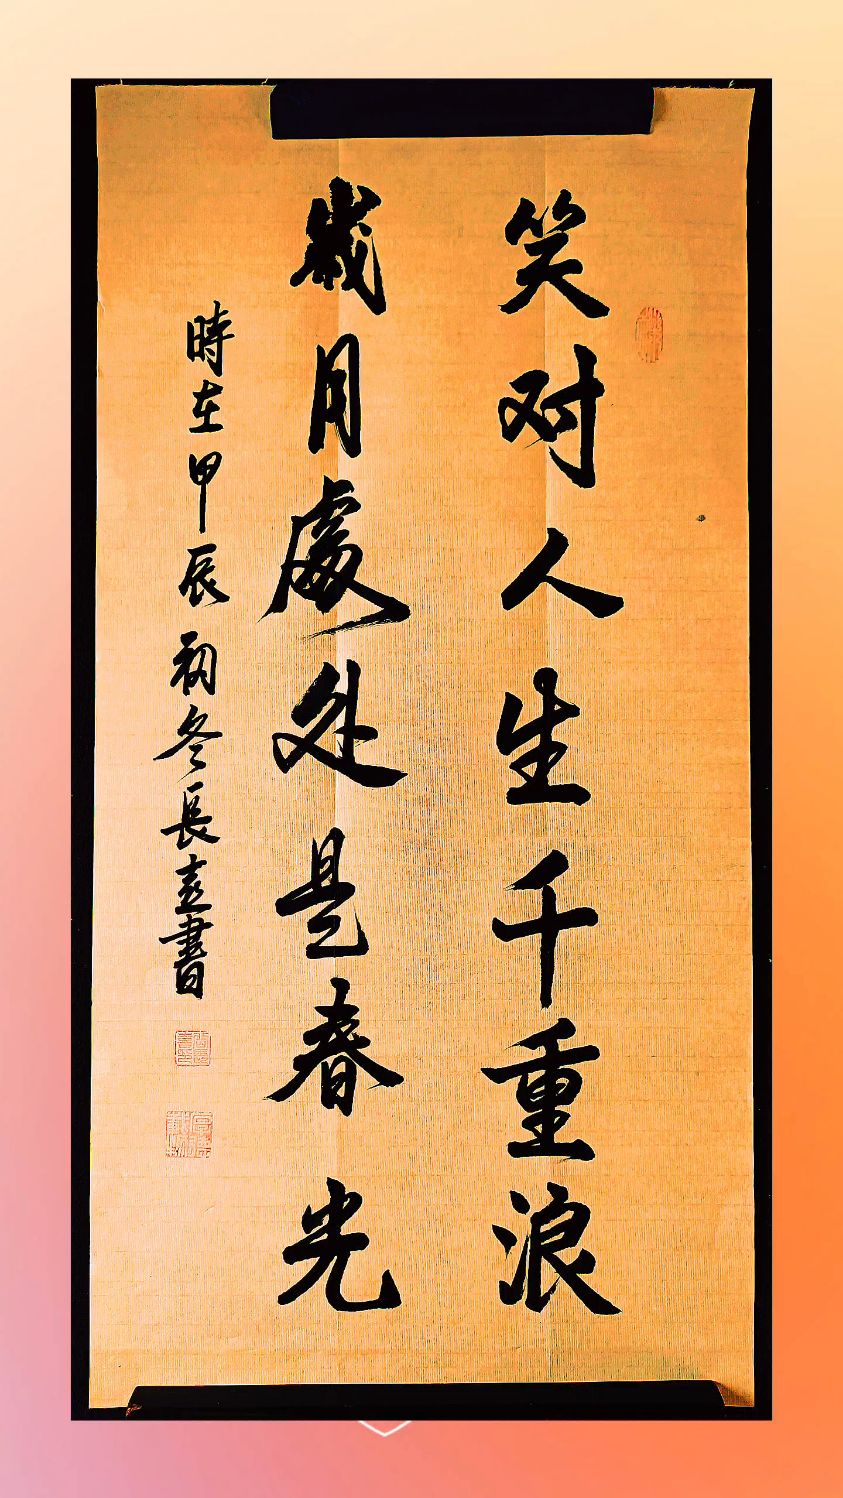 笑对人生千重浪
歲月處处是春光
時在甲辰初冬長書